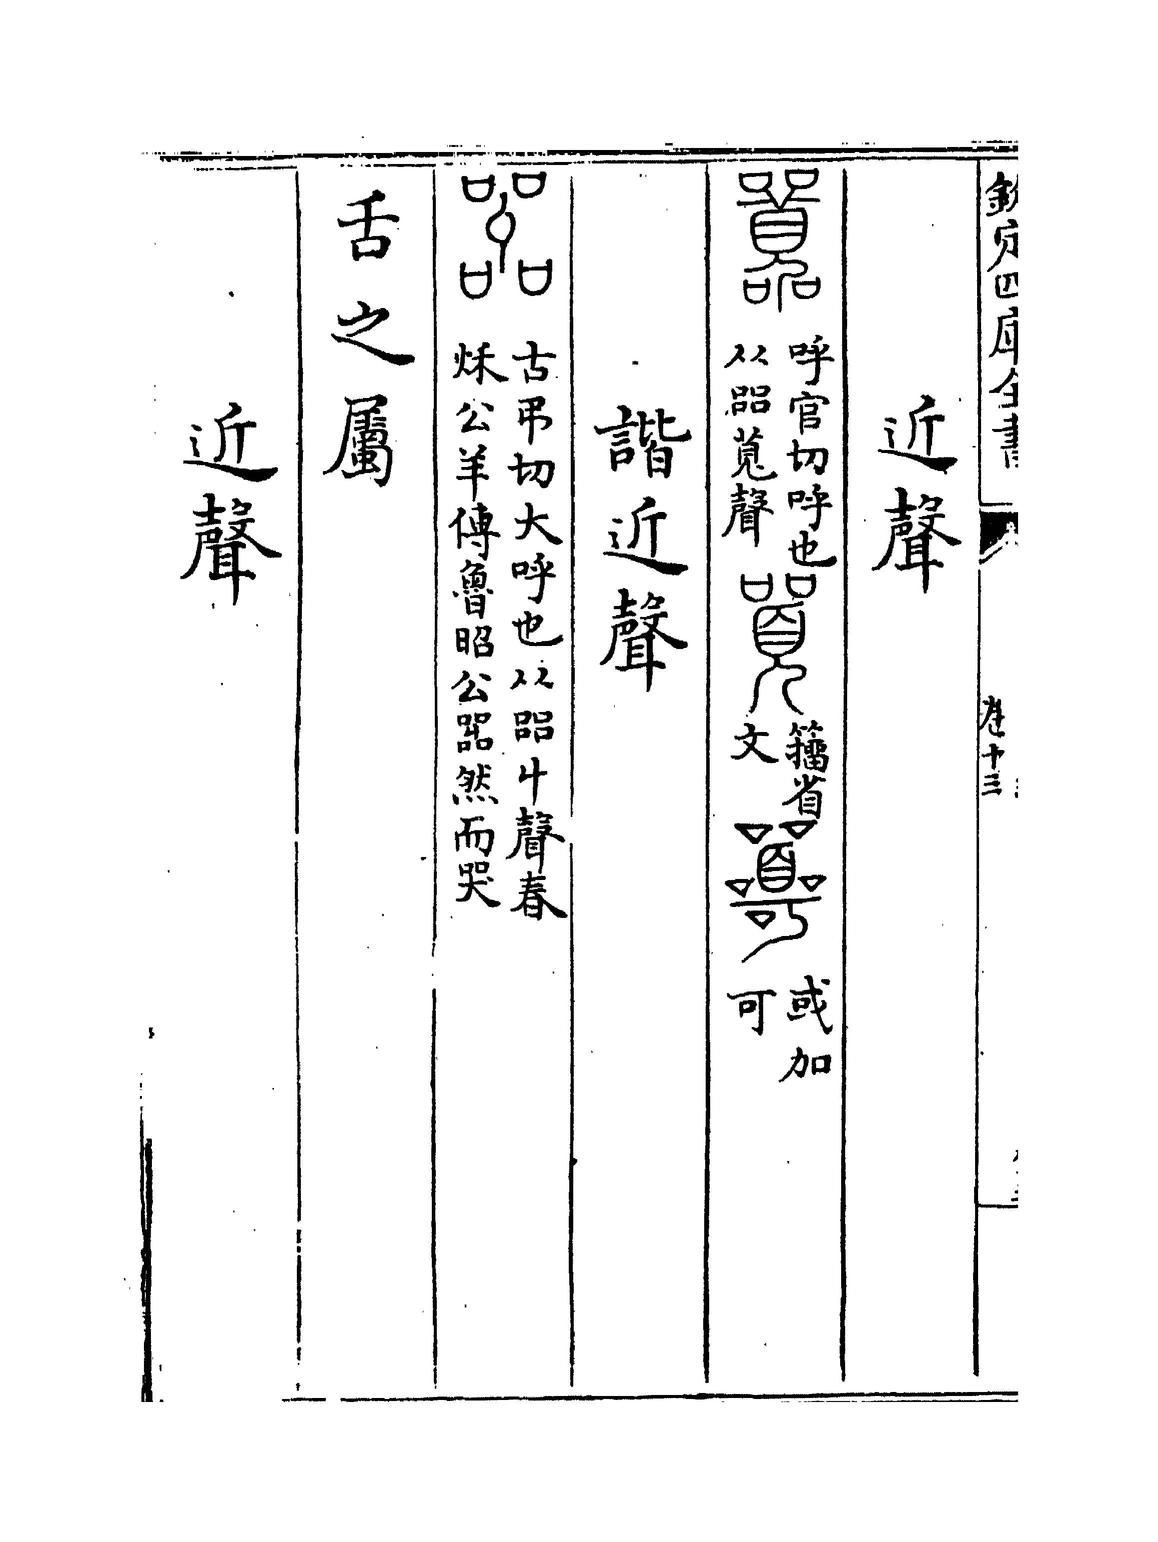 欽定四庫全書
卷十三
近聲
呼官切呼也
从㗊萈聲
籒省
文
或加
可
諧近聲
嘂
古弔切大呼也从㗊丩聲春
秌公羊傳魯昭公嘂然而哭
舌之屬
近聲